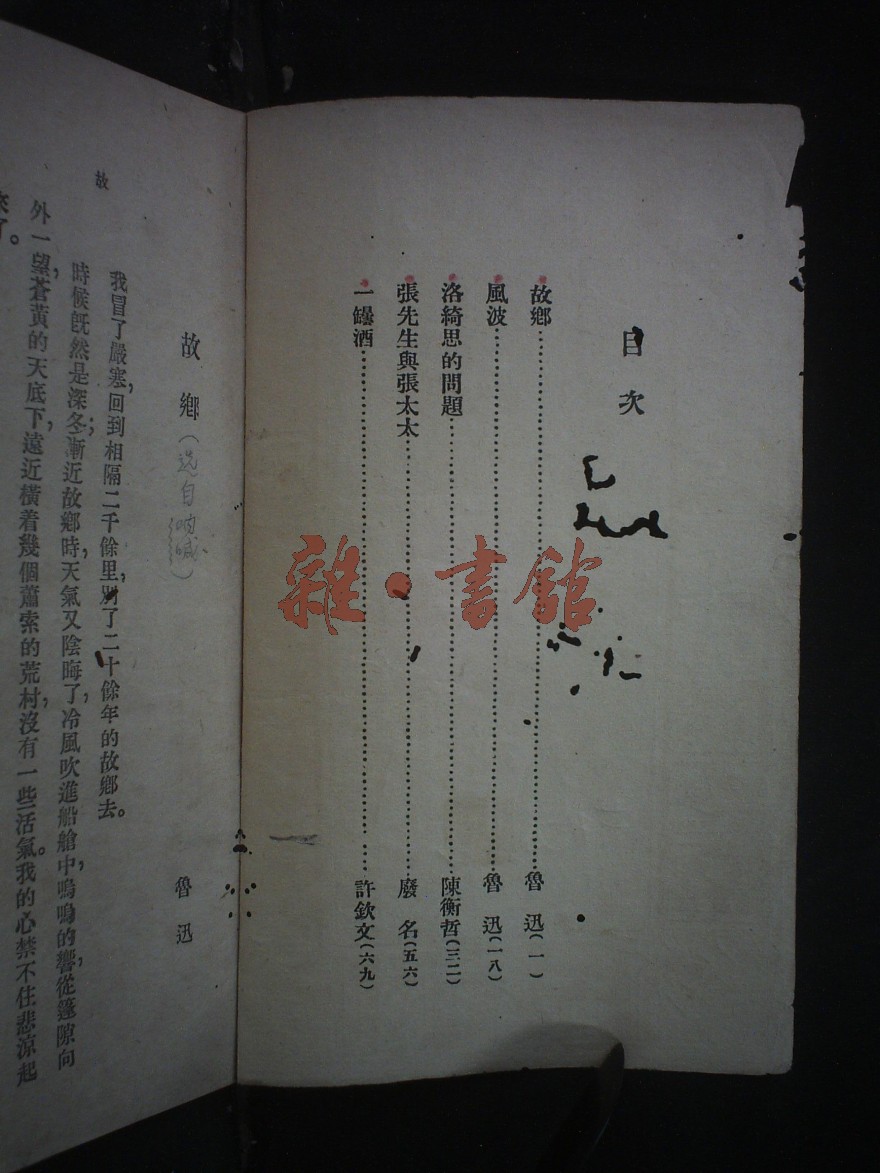 目次
故鄉……魯迅(一)
風波……魯迅(一八)
洛綺思的問題……陳衡哲(三二)
張先生與張太太……廢名(五六)
一罎酒……許欽文(六九)
雜·書館
故
故鄉(选自呐喊)
魯迅
我冒了嚴寒,回到相隔二千餘里,別了二十餘年的故鄉去。
時候旣然是深冬;漸近故鄉時,天氣又陰晦了,冷風吹進船艙中,嗚嗚的響,從篷隙向
外一望,蒼黃的天底下,遠近橫着幾個蕭索的荒村,沒有一些活氣。我的心禁不住悲涼起
來了。